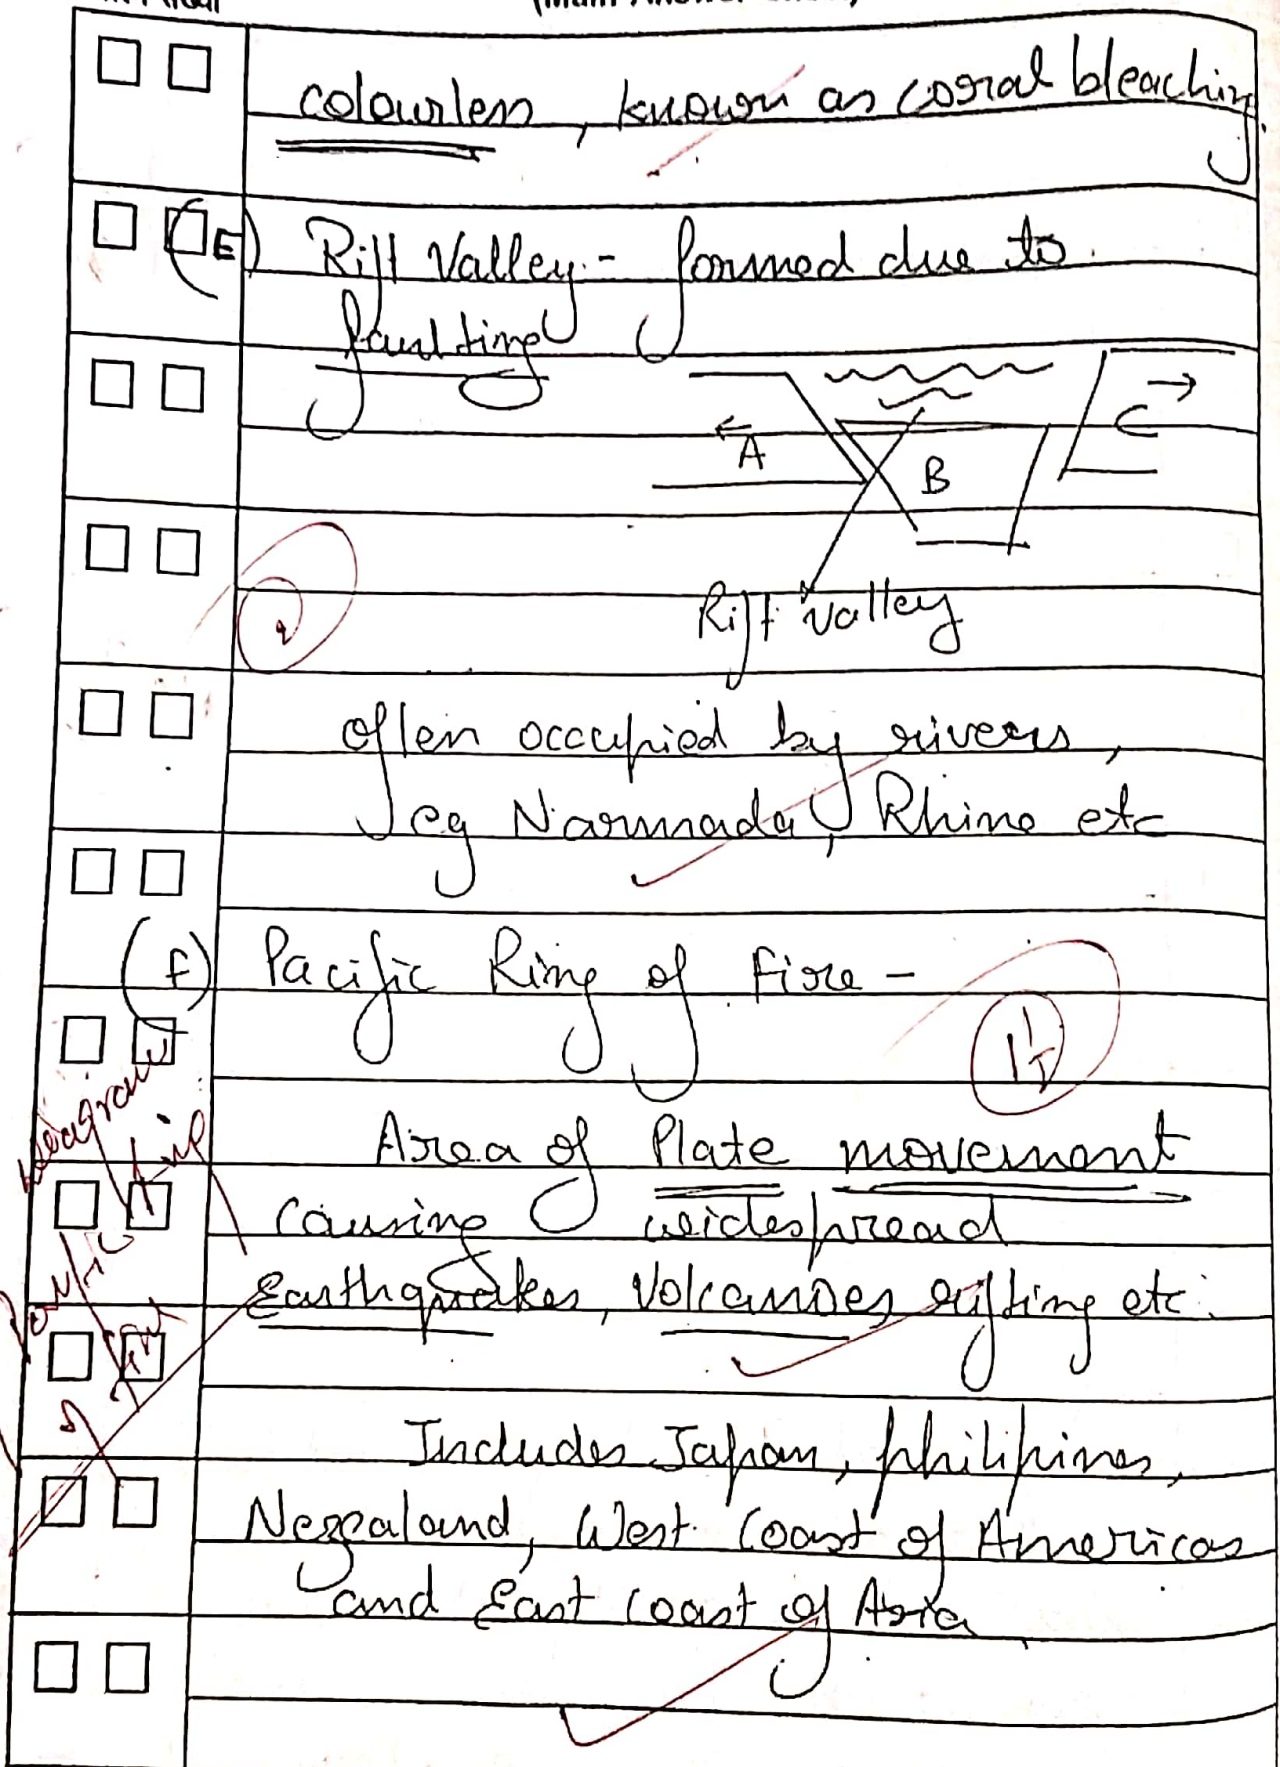 colourless, known as coral bleaching.
(E) Rift Valley:- formed due to
faulting
A B C
Rift valley
2
often occupied by rivers,
eg Narmada, Rhine etc
(f) Pacific Ring of Fire -
1½
Area of Plate movement
causing widespread
Earthquakes, Volcanoes, rifting etc.
Includes Japan, philipines,
Nezealand, West Coast of Americas
and East coast of Asia